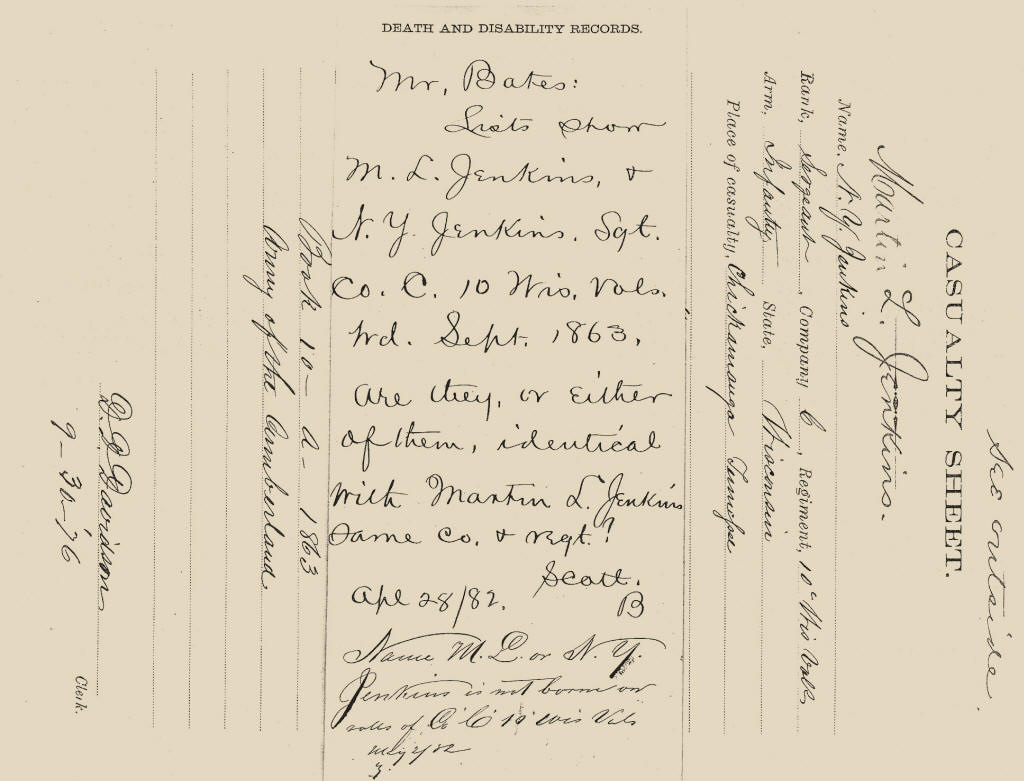 DEATH AND DISABILITY RECORDS.
Mr, Bates:
Lists show
M. L. Jenkins, &
N. Y. Jenkins. Sgt.
Co. C. 10 Wis, Vols.
Wd. Sept. 1863.
Are they, or either
of them, identical
with Martin L. Jenkins
Same Co. & regt.?
Scott.
B
Apl 28/82.
Name M. L. or N. Y.
Jenkins is not borne on
rolls of Co C 10 Wis Vols
May 2/82
See outside
CASUALTY SHEET.
Martin L. Jenkins.
Name, N. Y. Jenkins
Rank, Sergeant, Company C, Regiment, 10" Wis Vols,
Arm, Infantry State, Wisconsin
Place of casualty, Chickamauga
Book 10 - A - 1863
Army of the Cumberland
D. D. Davidson
9-30-'76
Clerk.